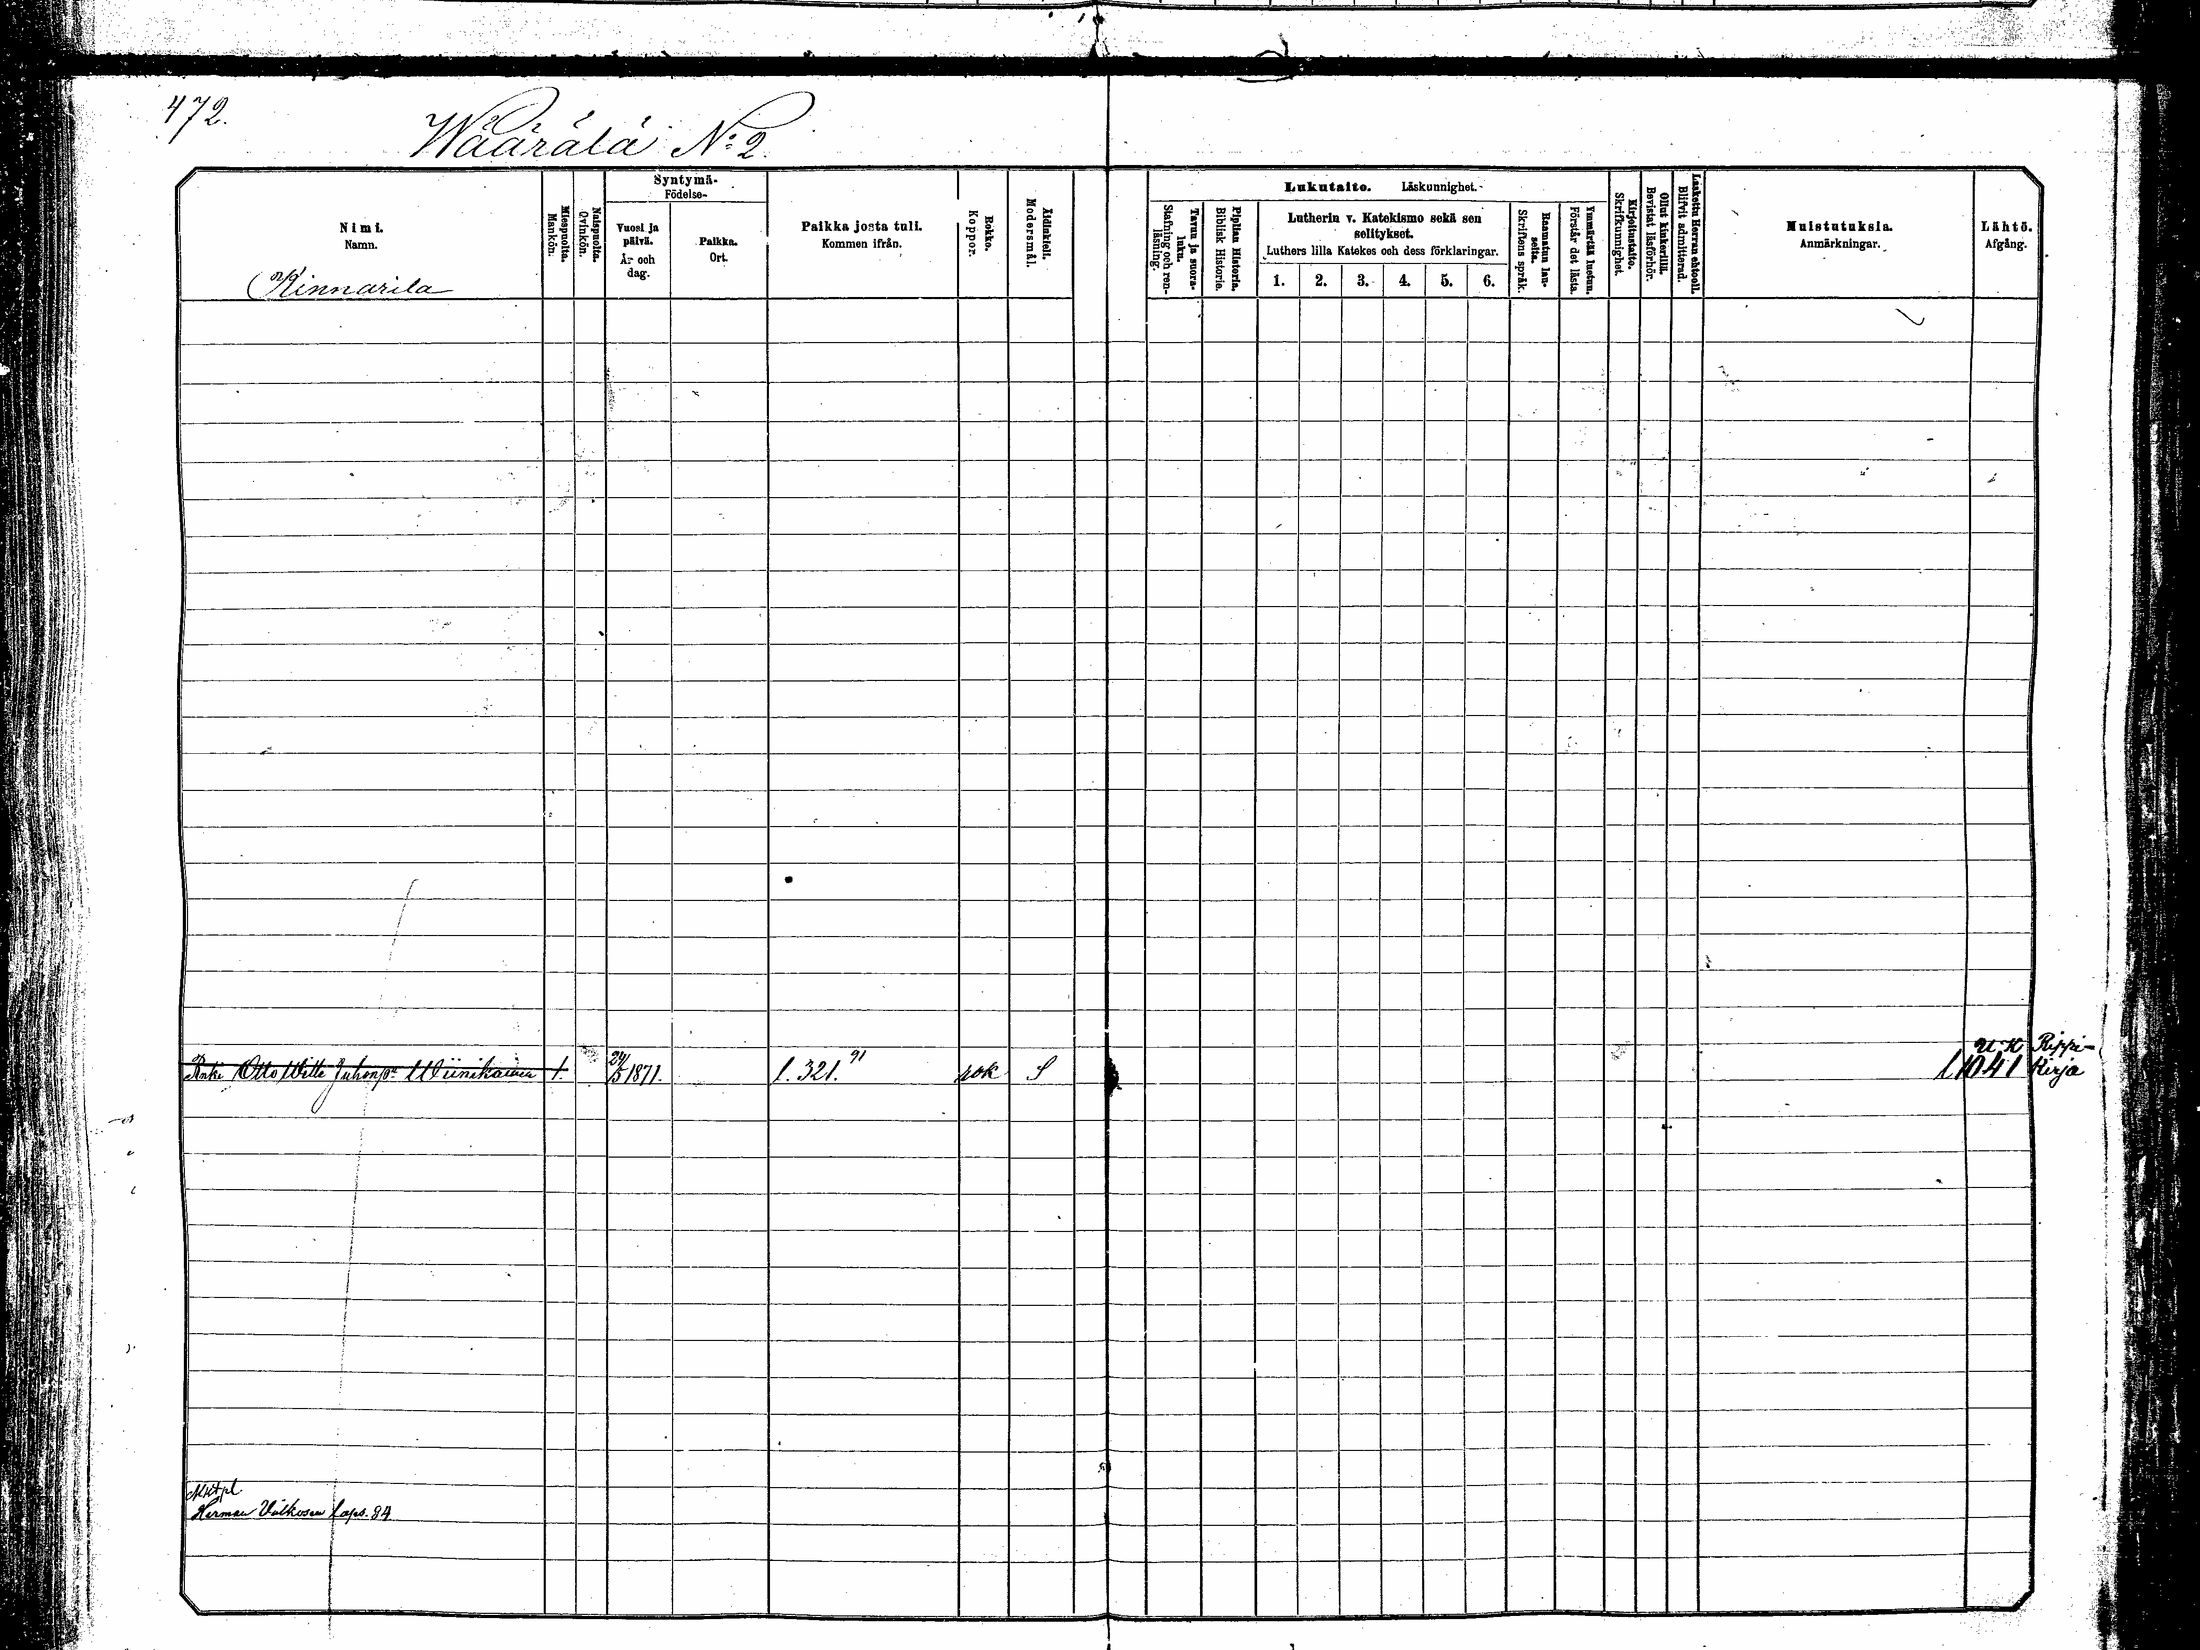 472.
Wäärälä N:o 2.
Nimi.
Namn.
Kinnarila
Miespuolia.
Mankön.
Naispuolia.
Qvinkön.
Syntymä-
Födelse-
Vuosi ja
päivä.
År och
dag.
Paikka.
Ort.
Paikka josta tuli.
Kommen ifrån.
Rokko.
Koppor.
Äidinkieli.
Modersmål.
Lukutaito. Läskunnighet.
Tavuu ja suora-
luku.
Stafning och ren-
läsning.
Piplian Historia.
Biblisk Historie.
Lutherin v. Katekismo sekä sen
selitykset.
Luthers lilla Katekes och dess förklaringar.
1. 2. 3. 4. 5. 6.
Raamatun lau-
seita.
Skriftens språk.
Ymmärtää luetun.
Förstår det lästa.
Kirjoitustaito.
Skrifkunnighet.
Ollut kinkerillä.
Bevistat läsförhör.
Laskettu Herran ehtooll.
Blifvit admitterad.
Muistutuksia.
Anmärkningar.
Lähtö.
Afgång.
Renki Otto Wille Juhonp. Wiinikainen 1. 24/5 1871. l. 321. 91 rok S
U K Rippi-
l 1041 Kirja
Herman Valkosen laps. 84